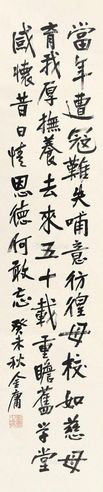 當年遭寇難失哺意彷徨母校如慈母
育我厚撫養去來五十載重瞻舊学堂
感懷昔日情恩德何敢忘 癸未秋金庸